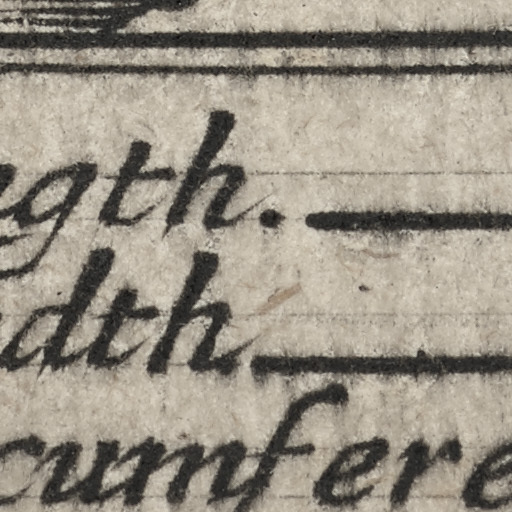 ngth. —
adth. —
cumfere